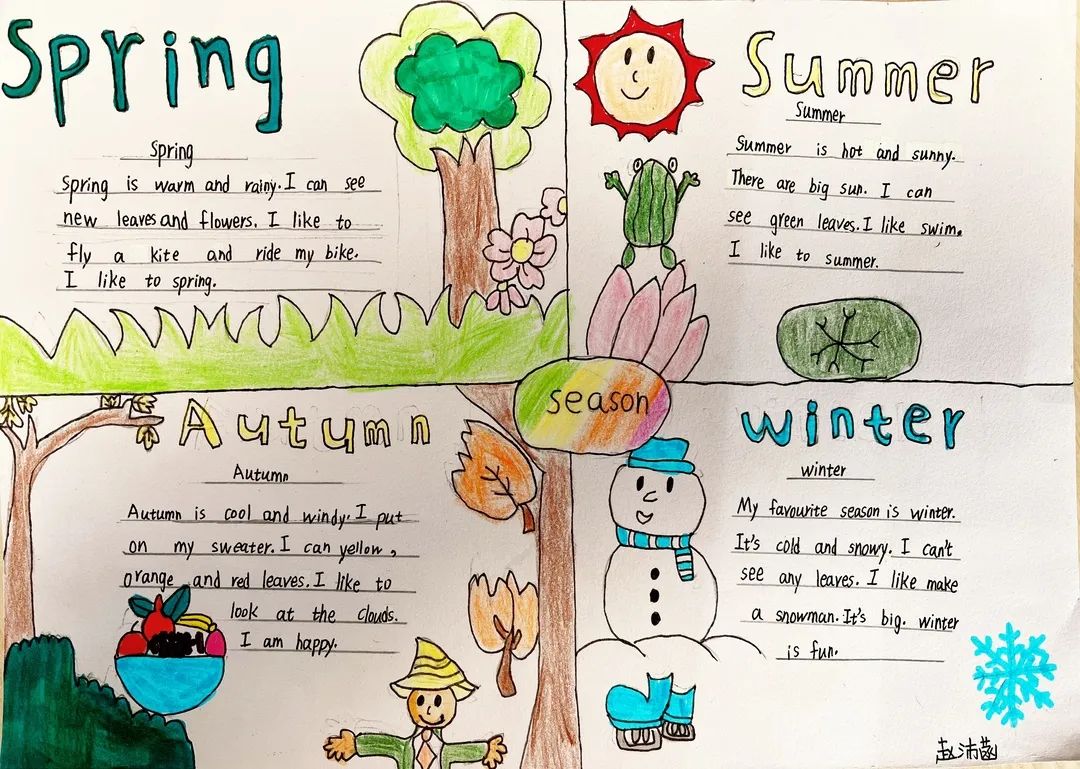 Spring
Spring
Spring is warm and rainy. I can see
new leaves and flowers. I like to
fly a kite and ride my bike.
I like to spring.
Summer
Summer
Summer is hot and sunny.
There are big sun. I can
see green leaves. I like swim.
I like to summer.
season
Autumn
Autumn
Autumn is cool and windy. I put
on my sweater. I can yellow,
orange and red leaves. I like to
look at the clouds.
I am happy.
winter
winter
My favourite season is winter.
It's cold and snowy. I can't
see any leaves. I like make
a snowman. It's big. winter
is fun.
赵沛菡